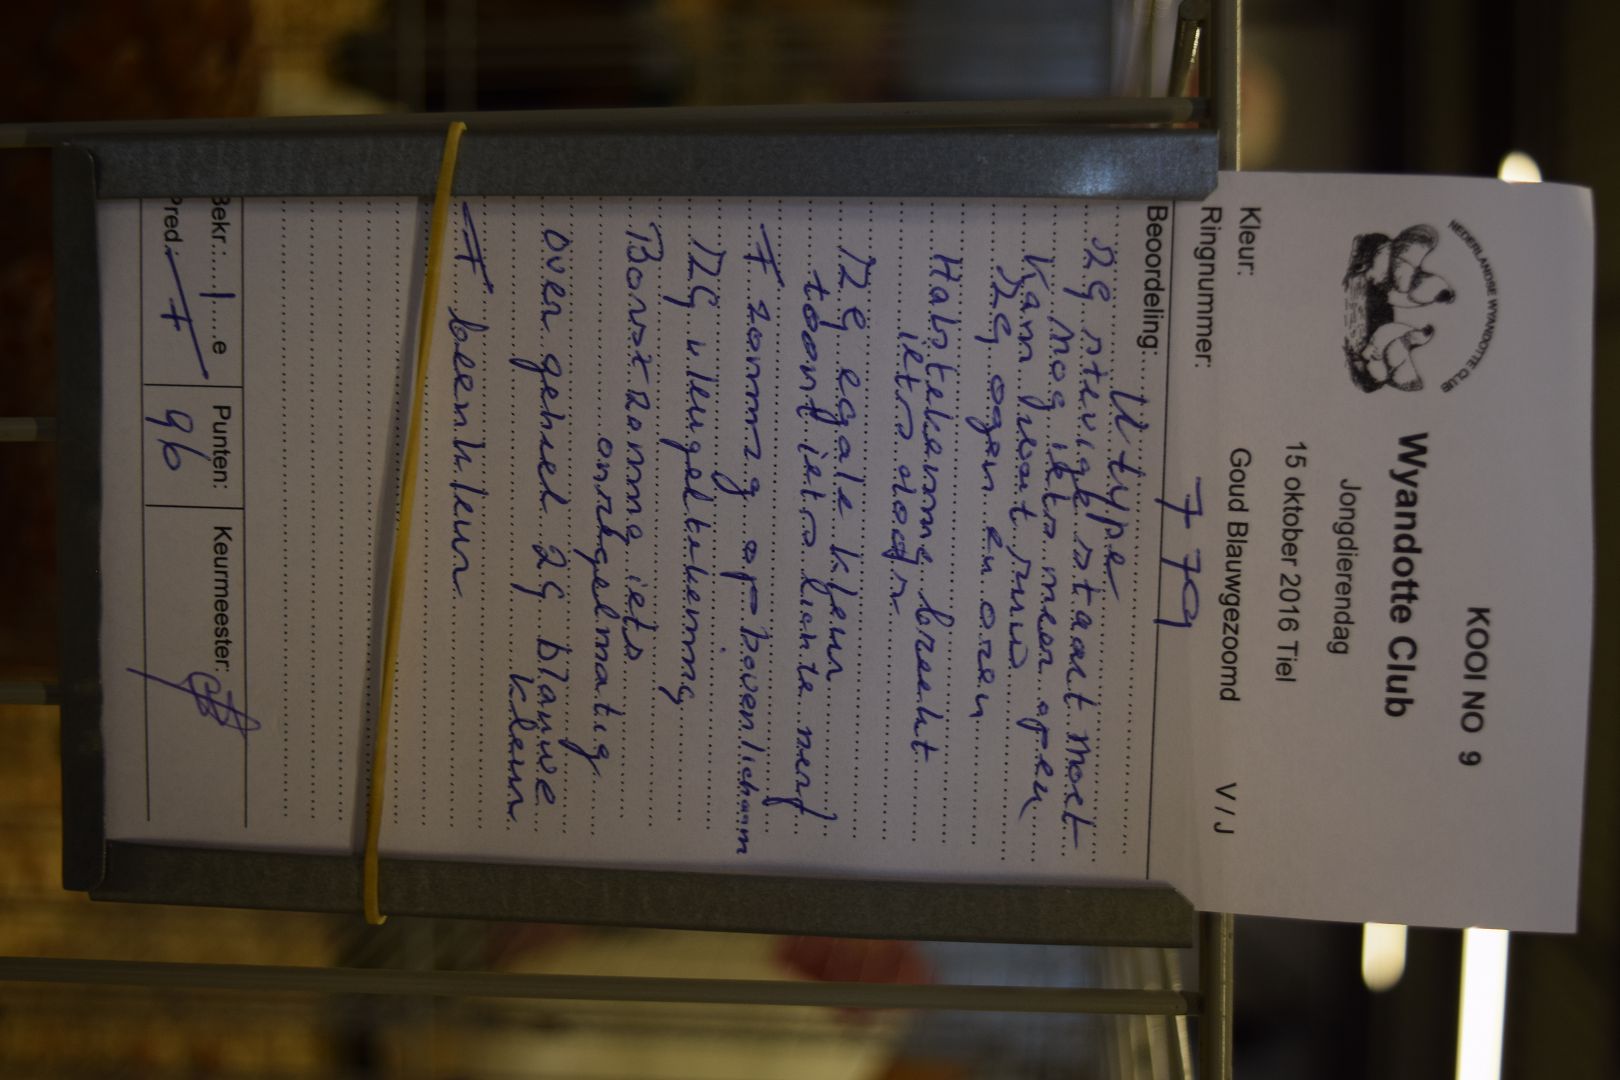 KOOI NO 9
NEDERLANDSE WYANDOTTE CLUB
Wyandotte Club
Jongdierendag
15 oktober 2016 Tiel
Kleur: Goud Blauwgezoomd V / J
Ringnummer: 779
Beoordeling: U type
ZG stevige staart moet
mag iets meer open
Kam wat ruw
ZG ogen en oren
Halstekening breekt
iets door
ZG egale kleur
toont iets lichte nerf
F zoming op bovenlichaam
ZG vleugeltekening
Borstzoming iets
onregelmatig
over geheel ZG blauwe
kleur
F beenkleur
Bekr: 1 e Punten: Keurmeester:
Pred: F 96